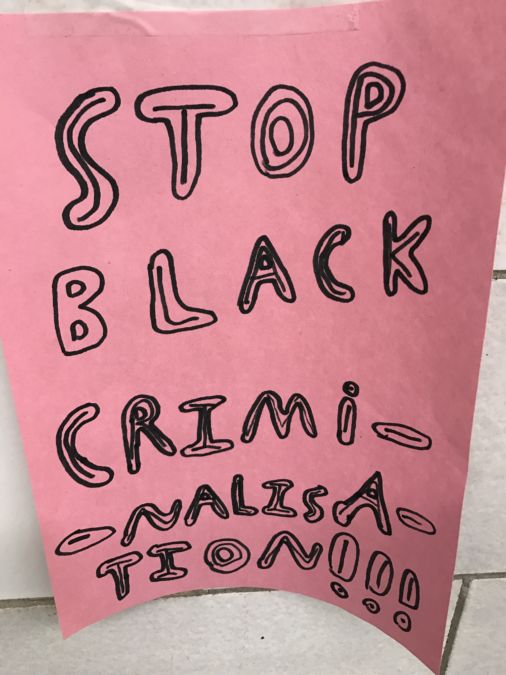 STOP
BLACK
CRIMi-
-NALISA-
TION!!!